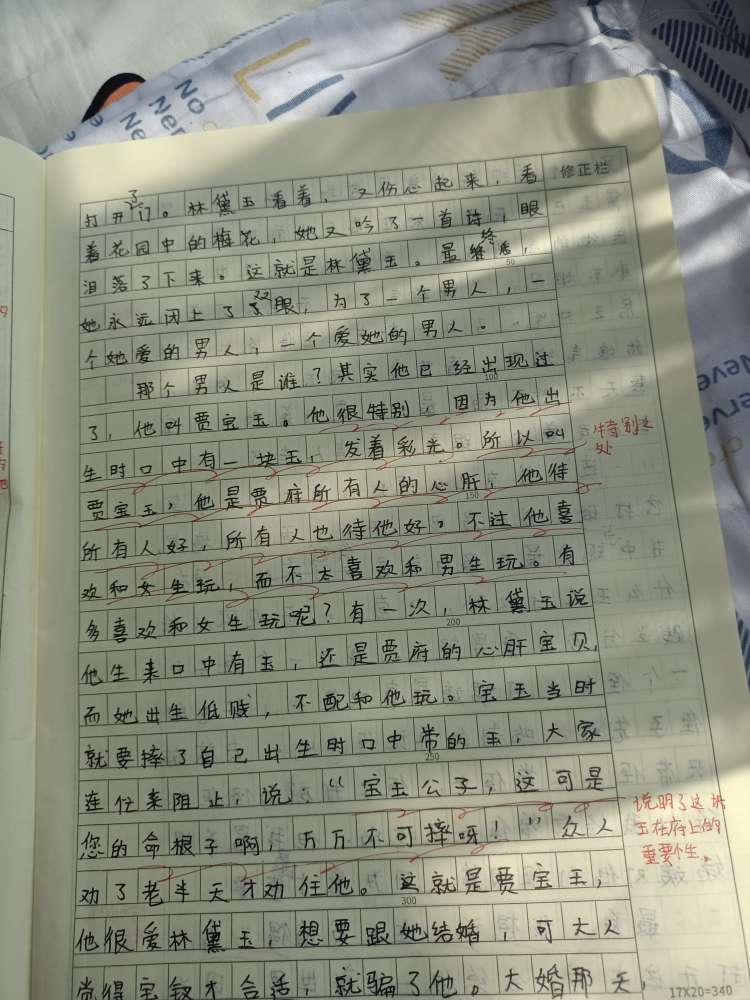 修正栏
打开了门。林黛玉看着，又伤心起来，看
着花园中的梅花，她又吟了一首诗，眼
泪落了下来。这就是林黛玉。最终后，
50
她永远闭上了双眼，为了一个男人，一
个她爱的男人，一个爱她的男人。
那个男人是谁？其实他已经出现过
100
了，他叫贾宝玉。他很特别，因为他出
生时口中有一块玉，发着彩光。所以叫
特别之
处
贾宝玉，他是贾府所有人的心肝，他待
150
所有人好，所有人也待他好。不过他喜
欢和女生玩，而不太喜欢和男生玩。有
多喜欢和女生玩呢？有一次，林黛玉说
200
他生来口中有玉，还是贾府的心肝宝贝，
而她出生低贱，不配和他玩。宝玉当时
就要摔了自己出生时口中常的玉，大家
250
连忙来阻止，说：“宝玉公子，这可是
您的命根子啊，万万不可摔呀！”众人
说明了这块
玉在府上的
重要性。
劝了老半天才劝住他。这就是贾宝玉，
300
他很爱林黛玉，想要跟她结婚，可大人
觉得宝钗才合适，就骗了他。大婚那天，
17X20=340